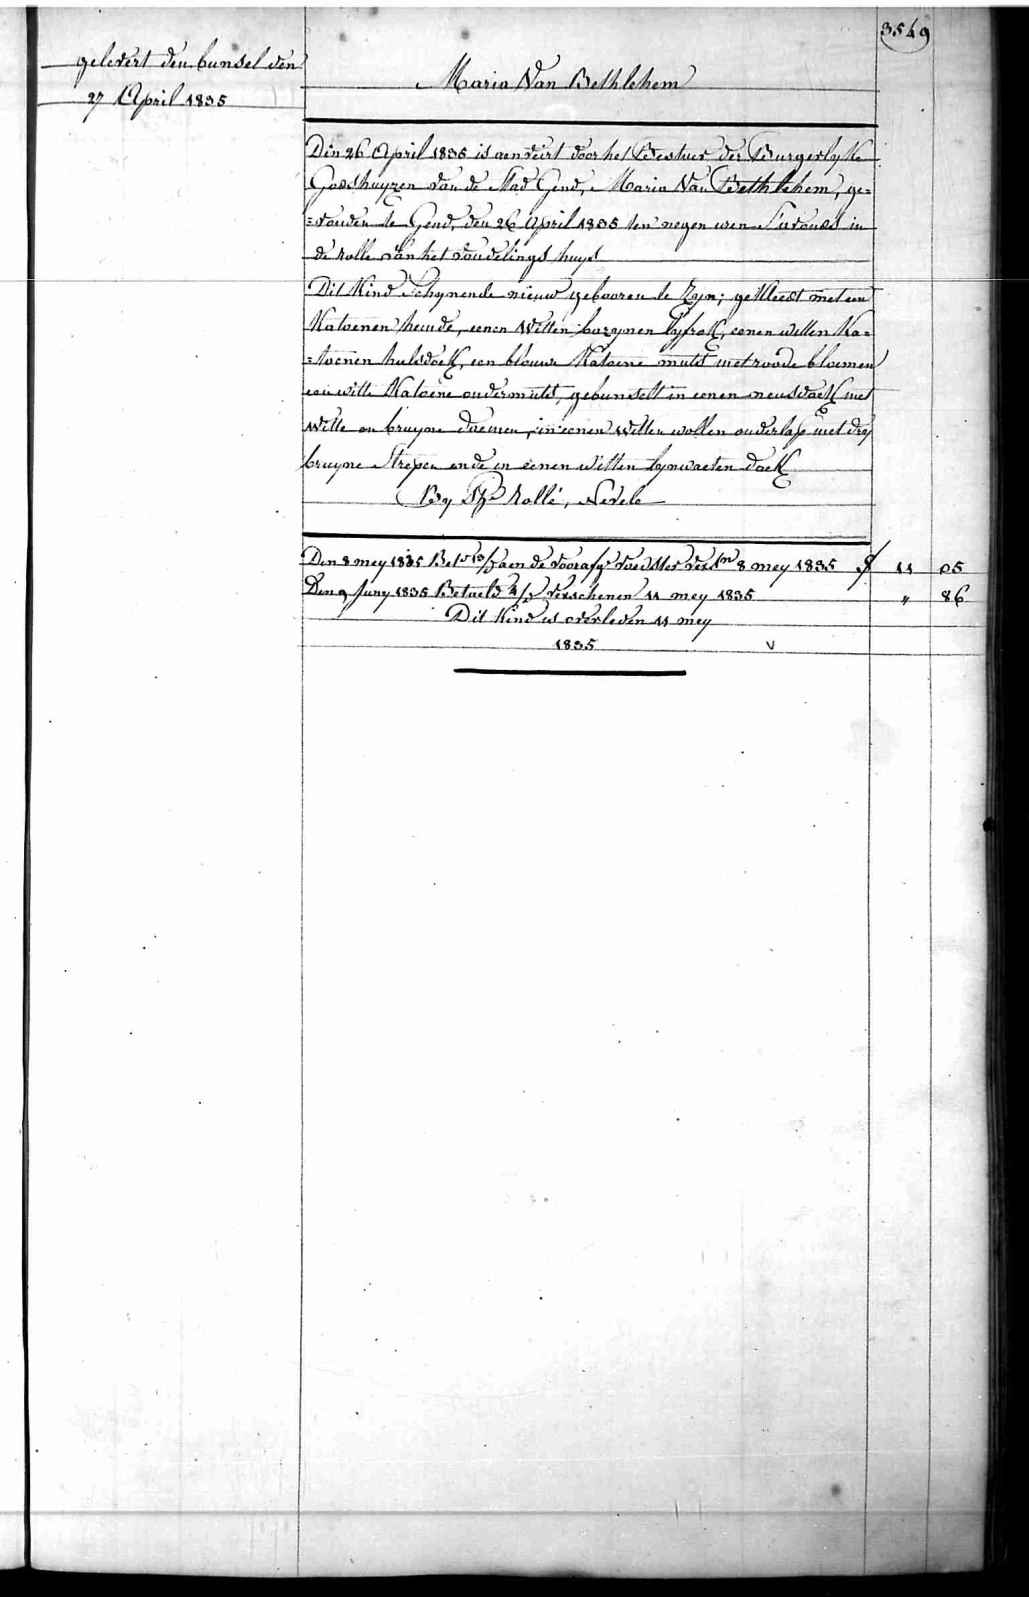 3549
gelevert den bunsel den
27 April 1835
Maria Van Bethlehem
Den 26 April 1835 is aenveirt door het Bestuur der Burgerlyke
Godshuyzen van de Stad Gend, Maria Van Bethlehem, ge=
=vonden te Gend, den 26 April 1835 ten negen uren s'avonds in
de rolle van het vondelings huys
Dit Kind schynende nieuw gebooren te Zyn; gekleed met een
Katoenen hemde, eenen Witten bazynen lyfrok, eenen witten Ka=
=toenen halsdoek, een blauwe Katoene muts met roode bloemen
een witte Katoene ondermuts, gebunselt in eenen neusdoek met
Witte en bruyne daemen, in eenen Witten wollen onderlap met dry
bruyne Strepen ende in eenen witten lynwaeten doek
By Rollé, Nevele
Den 8 mey 1835 aen de voorafge voedster 8 mey 1835 11 05
Den 9 Juny 1835 Betaeld verschenen 11 mey 1835 " 86
Dit Kind is overleden 11 mey
1835 v